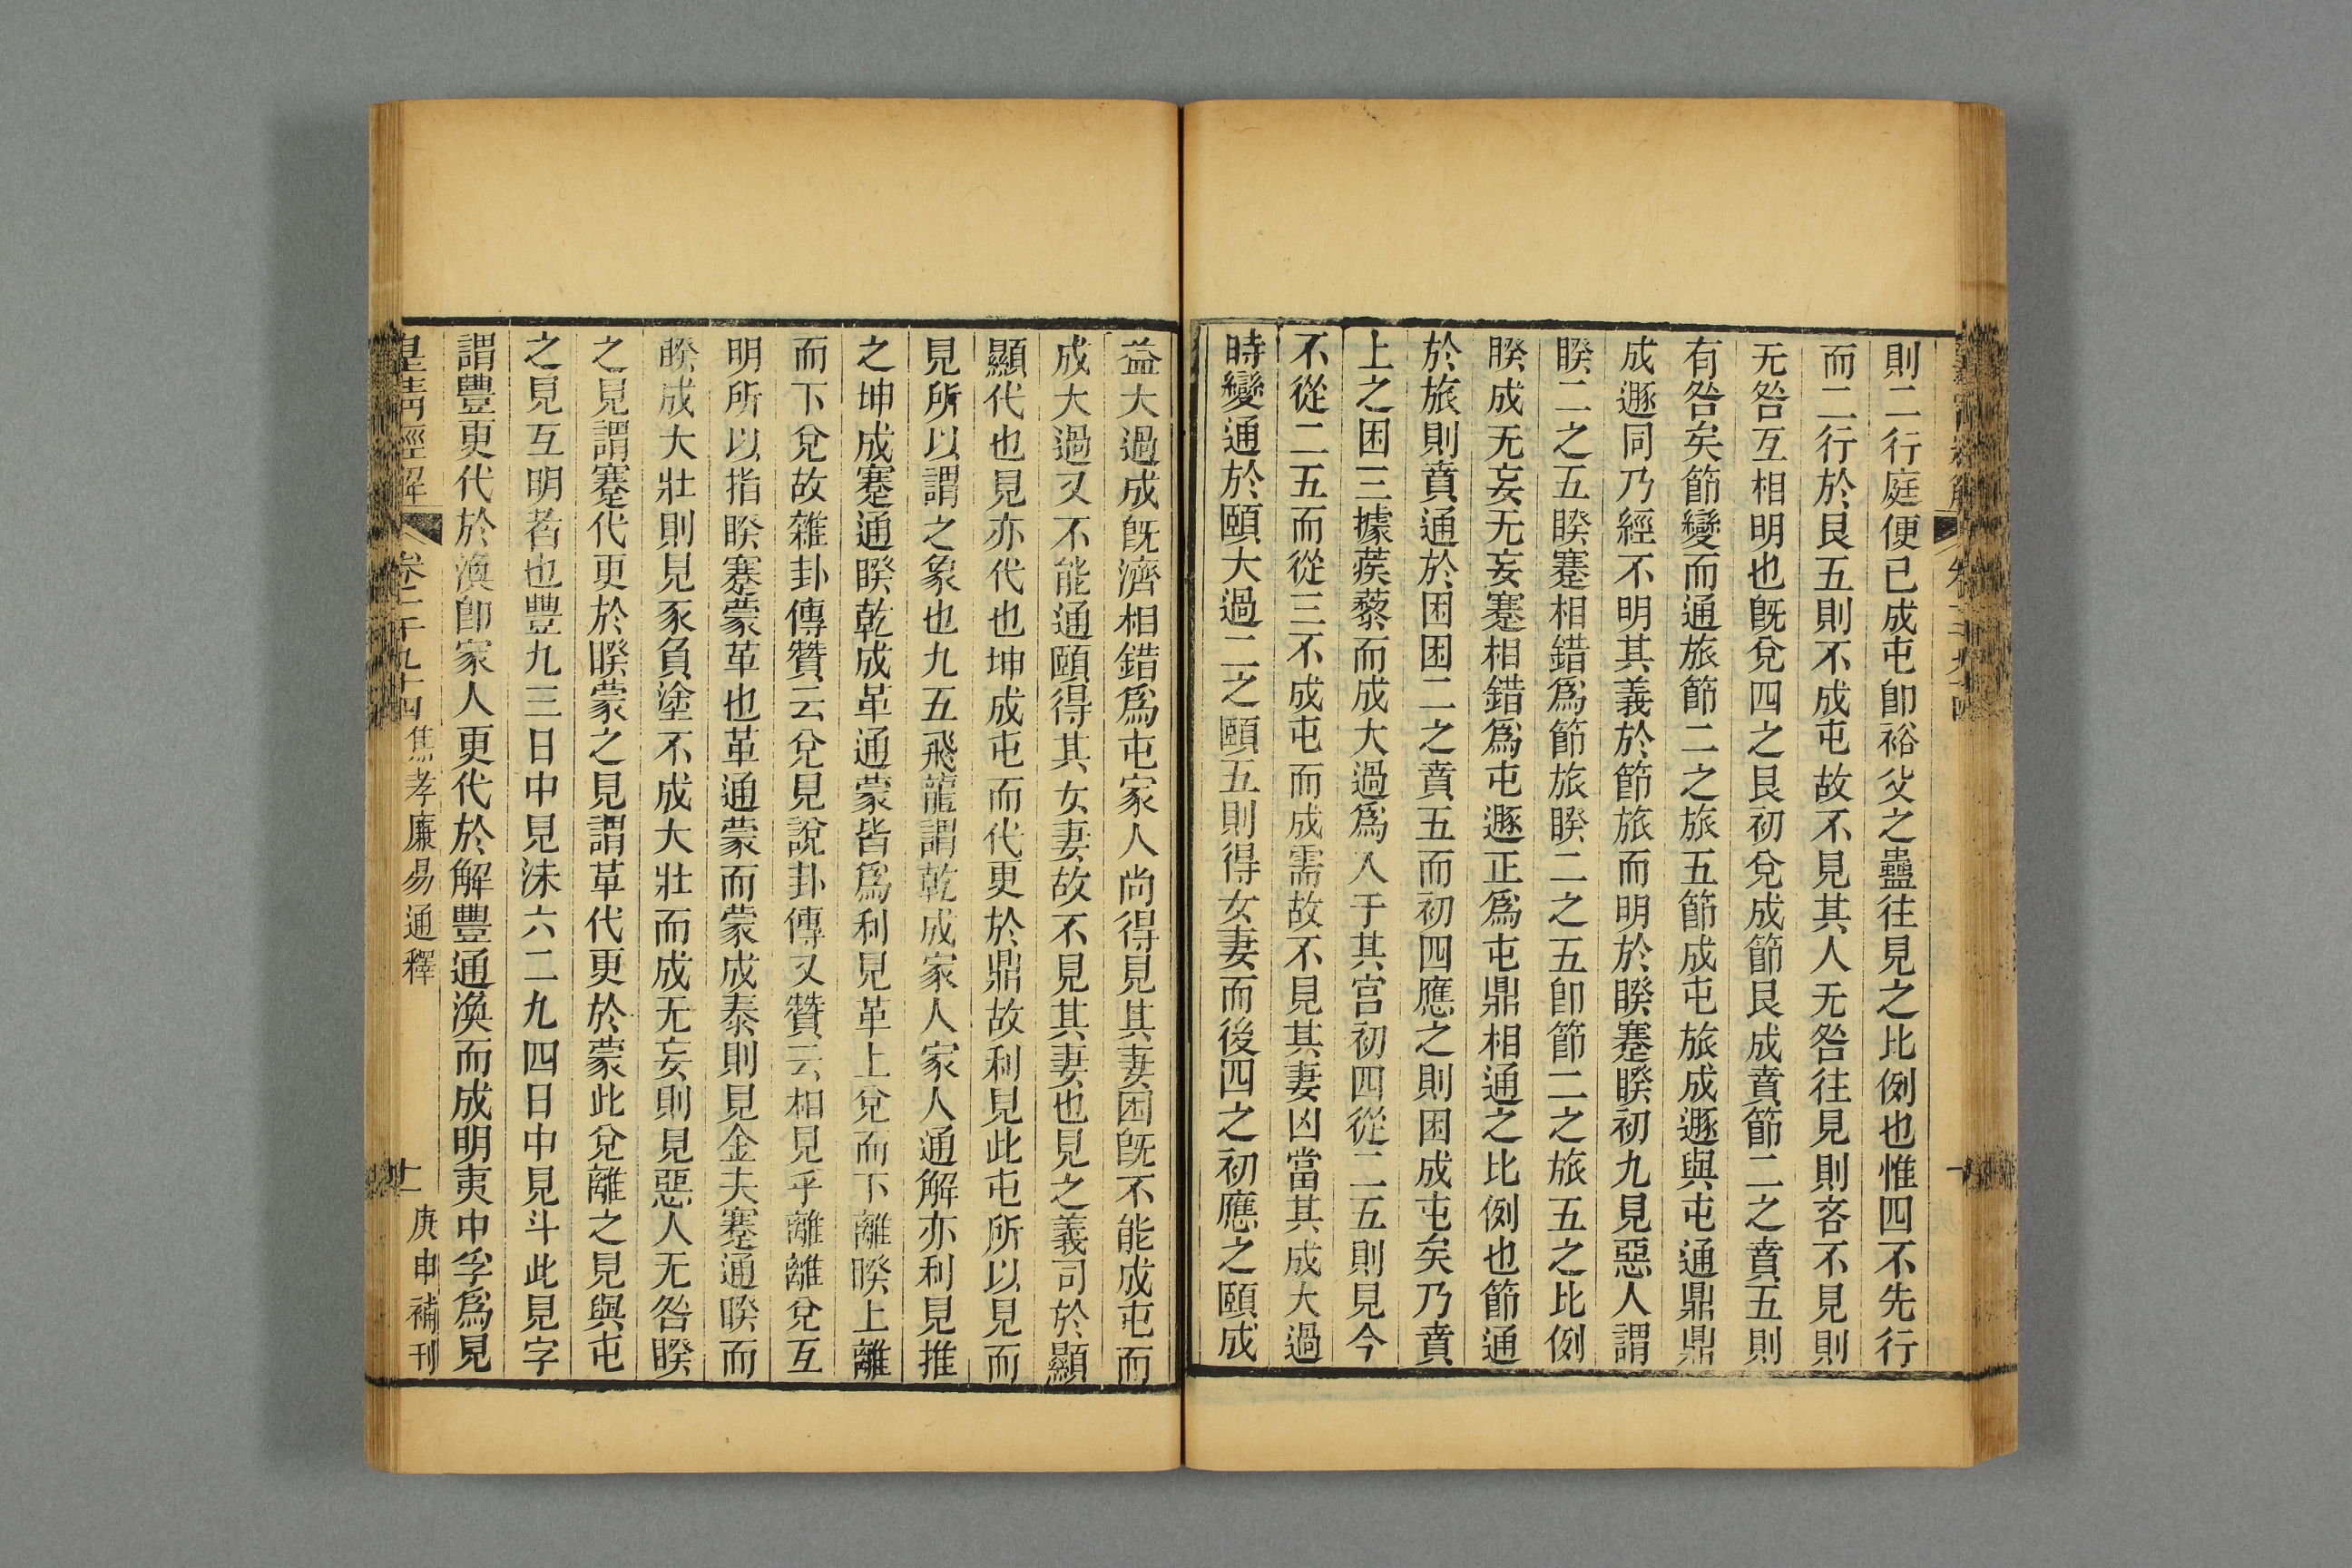 則二行庭便已成屯卽裕父之蠱往見之比例也惟四不先行
而二行於艮五則不成屯故不見其人无咎往見則吝不見則
无咎互相明也旣兌四之艮初兌成節艮成賁節二之賁五則
有咎矣節變而通旅節二之旅五節成屯旅成遯與屯通鼎鼎
成遯同乃經不明其義於節旅而明於睽蹇睽初九見惡人謂
睽二之五睽蹇相錯爲節旅睽二之五卽節二之旅五之比例
睽成无妄无妄蹇相錯爲屯遯正爲屯鼎相通之比例也節通
於旅則賁通於困困二之賁五而初四應之則困成屯矣乃賁
上之困三據蒺藜而成大過爲入于其宮初四從二五則見今
不從二五而從三不成屯而成需故不見其妻凶當其成大過
時變通於頤大過二之頤五則得女妻而後四之初應之頤成
益大過成旣濟相錯爲屯家人尚得見其妻困旣不能成屯而
成大過又不能通頤得其女妻故不見其妻也見之義司於顯
顯代也見亦代也坤成屯而代更於鼎故利見此屯所以見而
見所以謂之象也九五飛龍謂乾成家人家人通解亦利見推
之坤成蹇通睽乾成革通蒙皆爲利見革上兌而下離睽上離
而下兌故雜卦傳贊云兌見說卦傳又贊云相見乎離離兌互
明所以指睽蹇蒙革也革通蒙而蒙成泰則見金夫蹇通睽而
睽成大壯則見豕負塗不成大壯而成无妄則見惡人无咎睽
之見謂蹇代更於睽蒙之見謂革代更於蒙此兌離之見與屯
之見互明者也豐九三日中見沬六二九四日中見斗此見字
謂豐更代於渙卽家人更代於解豐通渙而成明夷中孚爲見
皇淸經解 卷二千九十四 焦孝廉易通釋 十一 庚申補刊